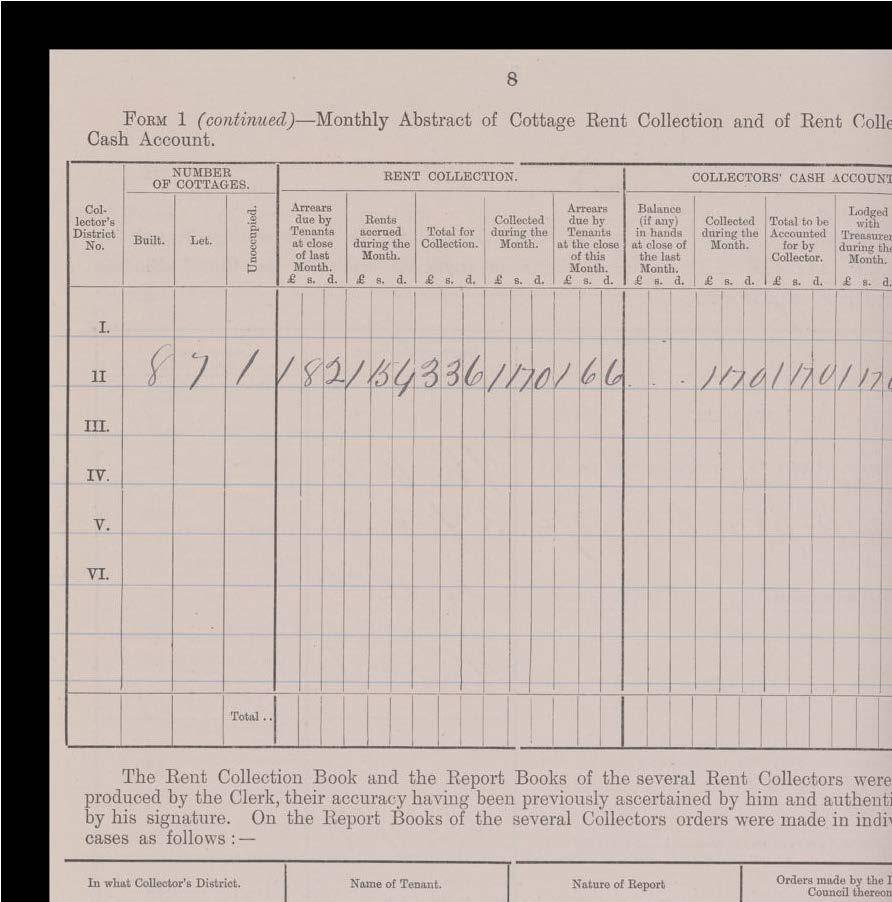 8
FORM 1 (continued)—Monthly Abstract of Cottage Rent Collection and of Rent Colle
Cash Account.
NUMBER
OF COTTAGES.
RENT COLLECTION.
COLLECTORS' CASH ACCOUNT
Col-
lector's
District
No.
Built.
Let.
Unoccupied.
Arrears
due by
Tenants
at close
of last
Month.
£ s. d.
Rents
accrued
during the
Month.
£ s. d.
Total for
Collection.
£ s. d.
Collected
during the
Month.
£ s. d.
Arrears
due by
Tenants
at the close
of this
Month.
£ s. d.
Balance
(if any)
in hands
at close of
the last
Month.
£ s. d.
Collected
during the
Month.
£ s. d.
Total to be
Accounted
for by
Collector.
£ s. d.
Lodged
with
Treasurer
during the
Month.
£ s. d.
I.
II 8 7 1 1 8 2 1 15 4 3 3 6 1 17 0 1 6 6 . . . 1 17 0 1 17 0 1 17 0
III.
IV.
V.
VI.
Total ..
The Rent Collection Book and the Report Books of the several Rent Collectors were
produced by the Clerk, their accuracy having been previously ascertained by him and authenti
by his signature. On the Report Books of the several Collectors orders were made in indiv
cases as follows :—
In what Collector's District.
Name of Tenant.
Nature of Report
Orders made by the
Council thereon